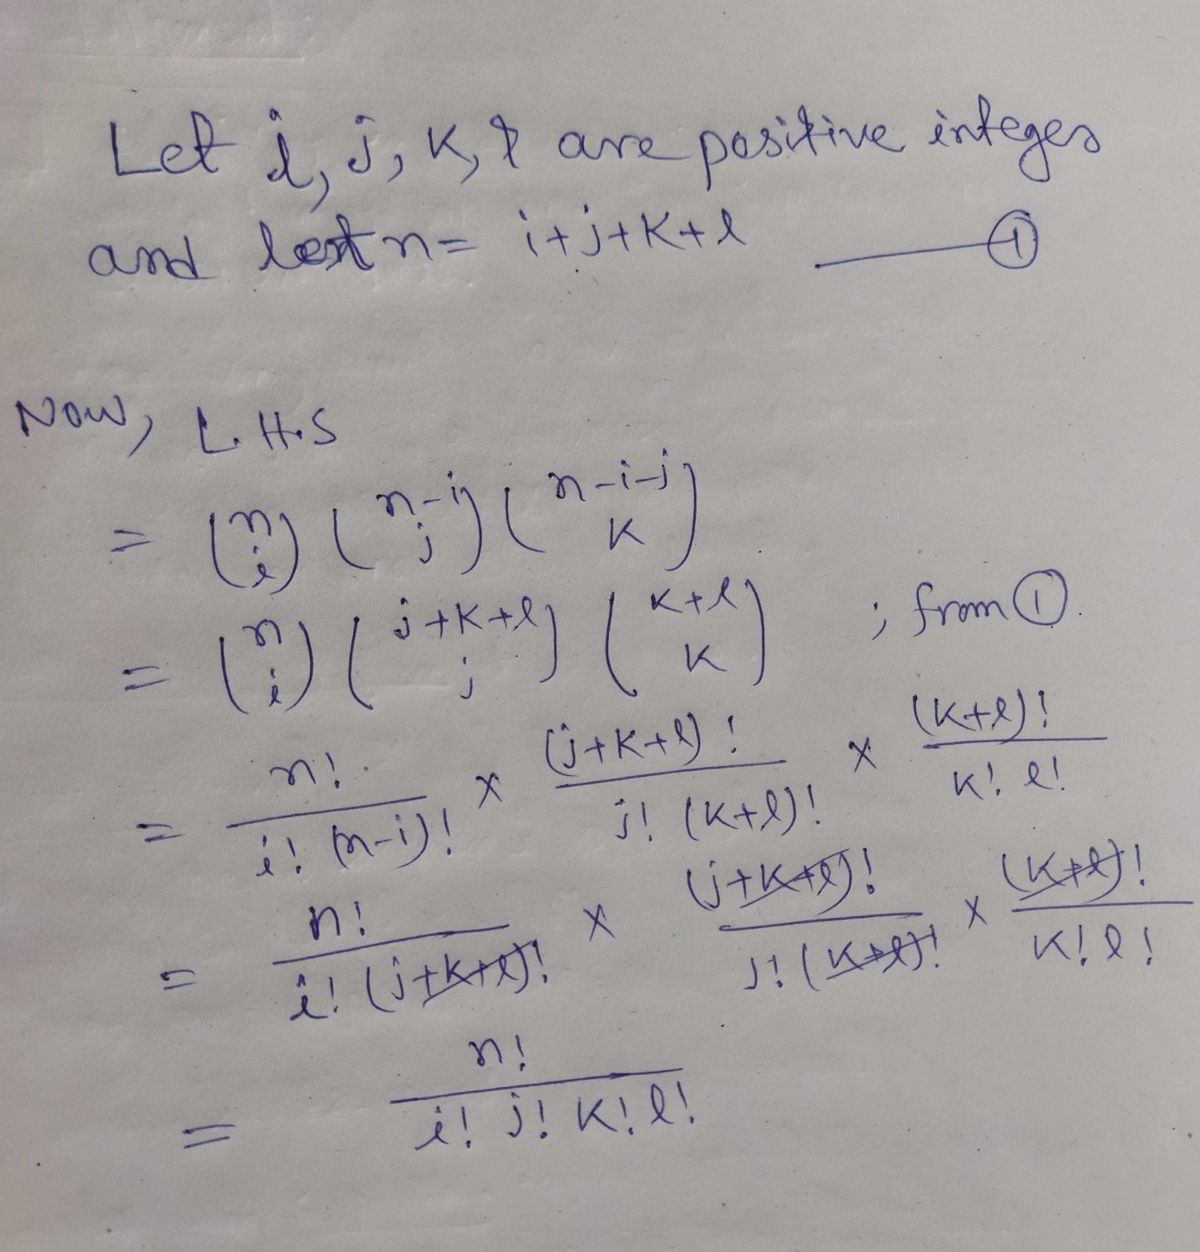 Let i, j, k, l are positive integes
and let n = i+j+k+l ——— ①
Now, L.H.S
= (n i) (n-i j) (n-i-j k)
= (n i) (j+k+l j) (k+l k) ; from ①.
= n! / i! (n-i)! × (j+k+l)! / j! (k+l)! × (k+l)! / k! l!
= n! / i! (j+k+l)! × (j+k+l)! / j! (k+l)! × (k+l)! / k! l!
= n! / i! j! k! l!